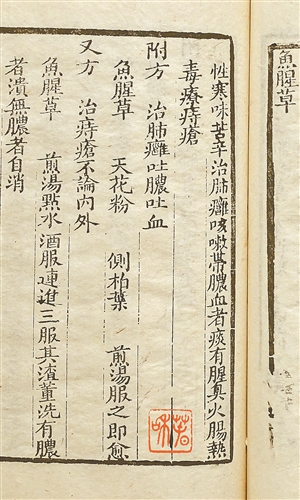 魚腥草
性寒味苦辛治肺癰咳嗽帶膿血者痰有腥臭火腸熱
毒療痔瘡
附方　治肺癰吐膿吐血
魚腥草　天花粉　側柏葉　煎湯服之即愈
又方　治痔瘡不論內外
魚腥草　煎湯點水酒服連進三服其渣薰洗有膿
者潰無膿者自消